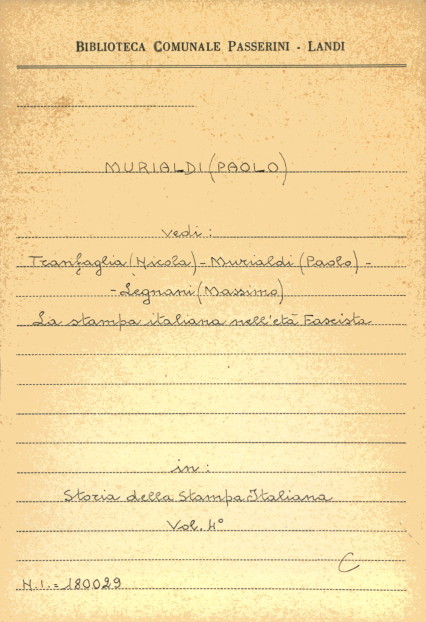 BIBLIOTECA COMUNALE PASSERINI - LANDI
MURIALDI (PAOLO)
vedi:
Tranfaglia (Nicola) - Murialdi (Paolo) -
- Legnani (Massimo)
La stampa italiana nell'età Fascista
in:
Storia della Stampa Italiana
Vol. 4°
C
N.I. = 180029